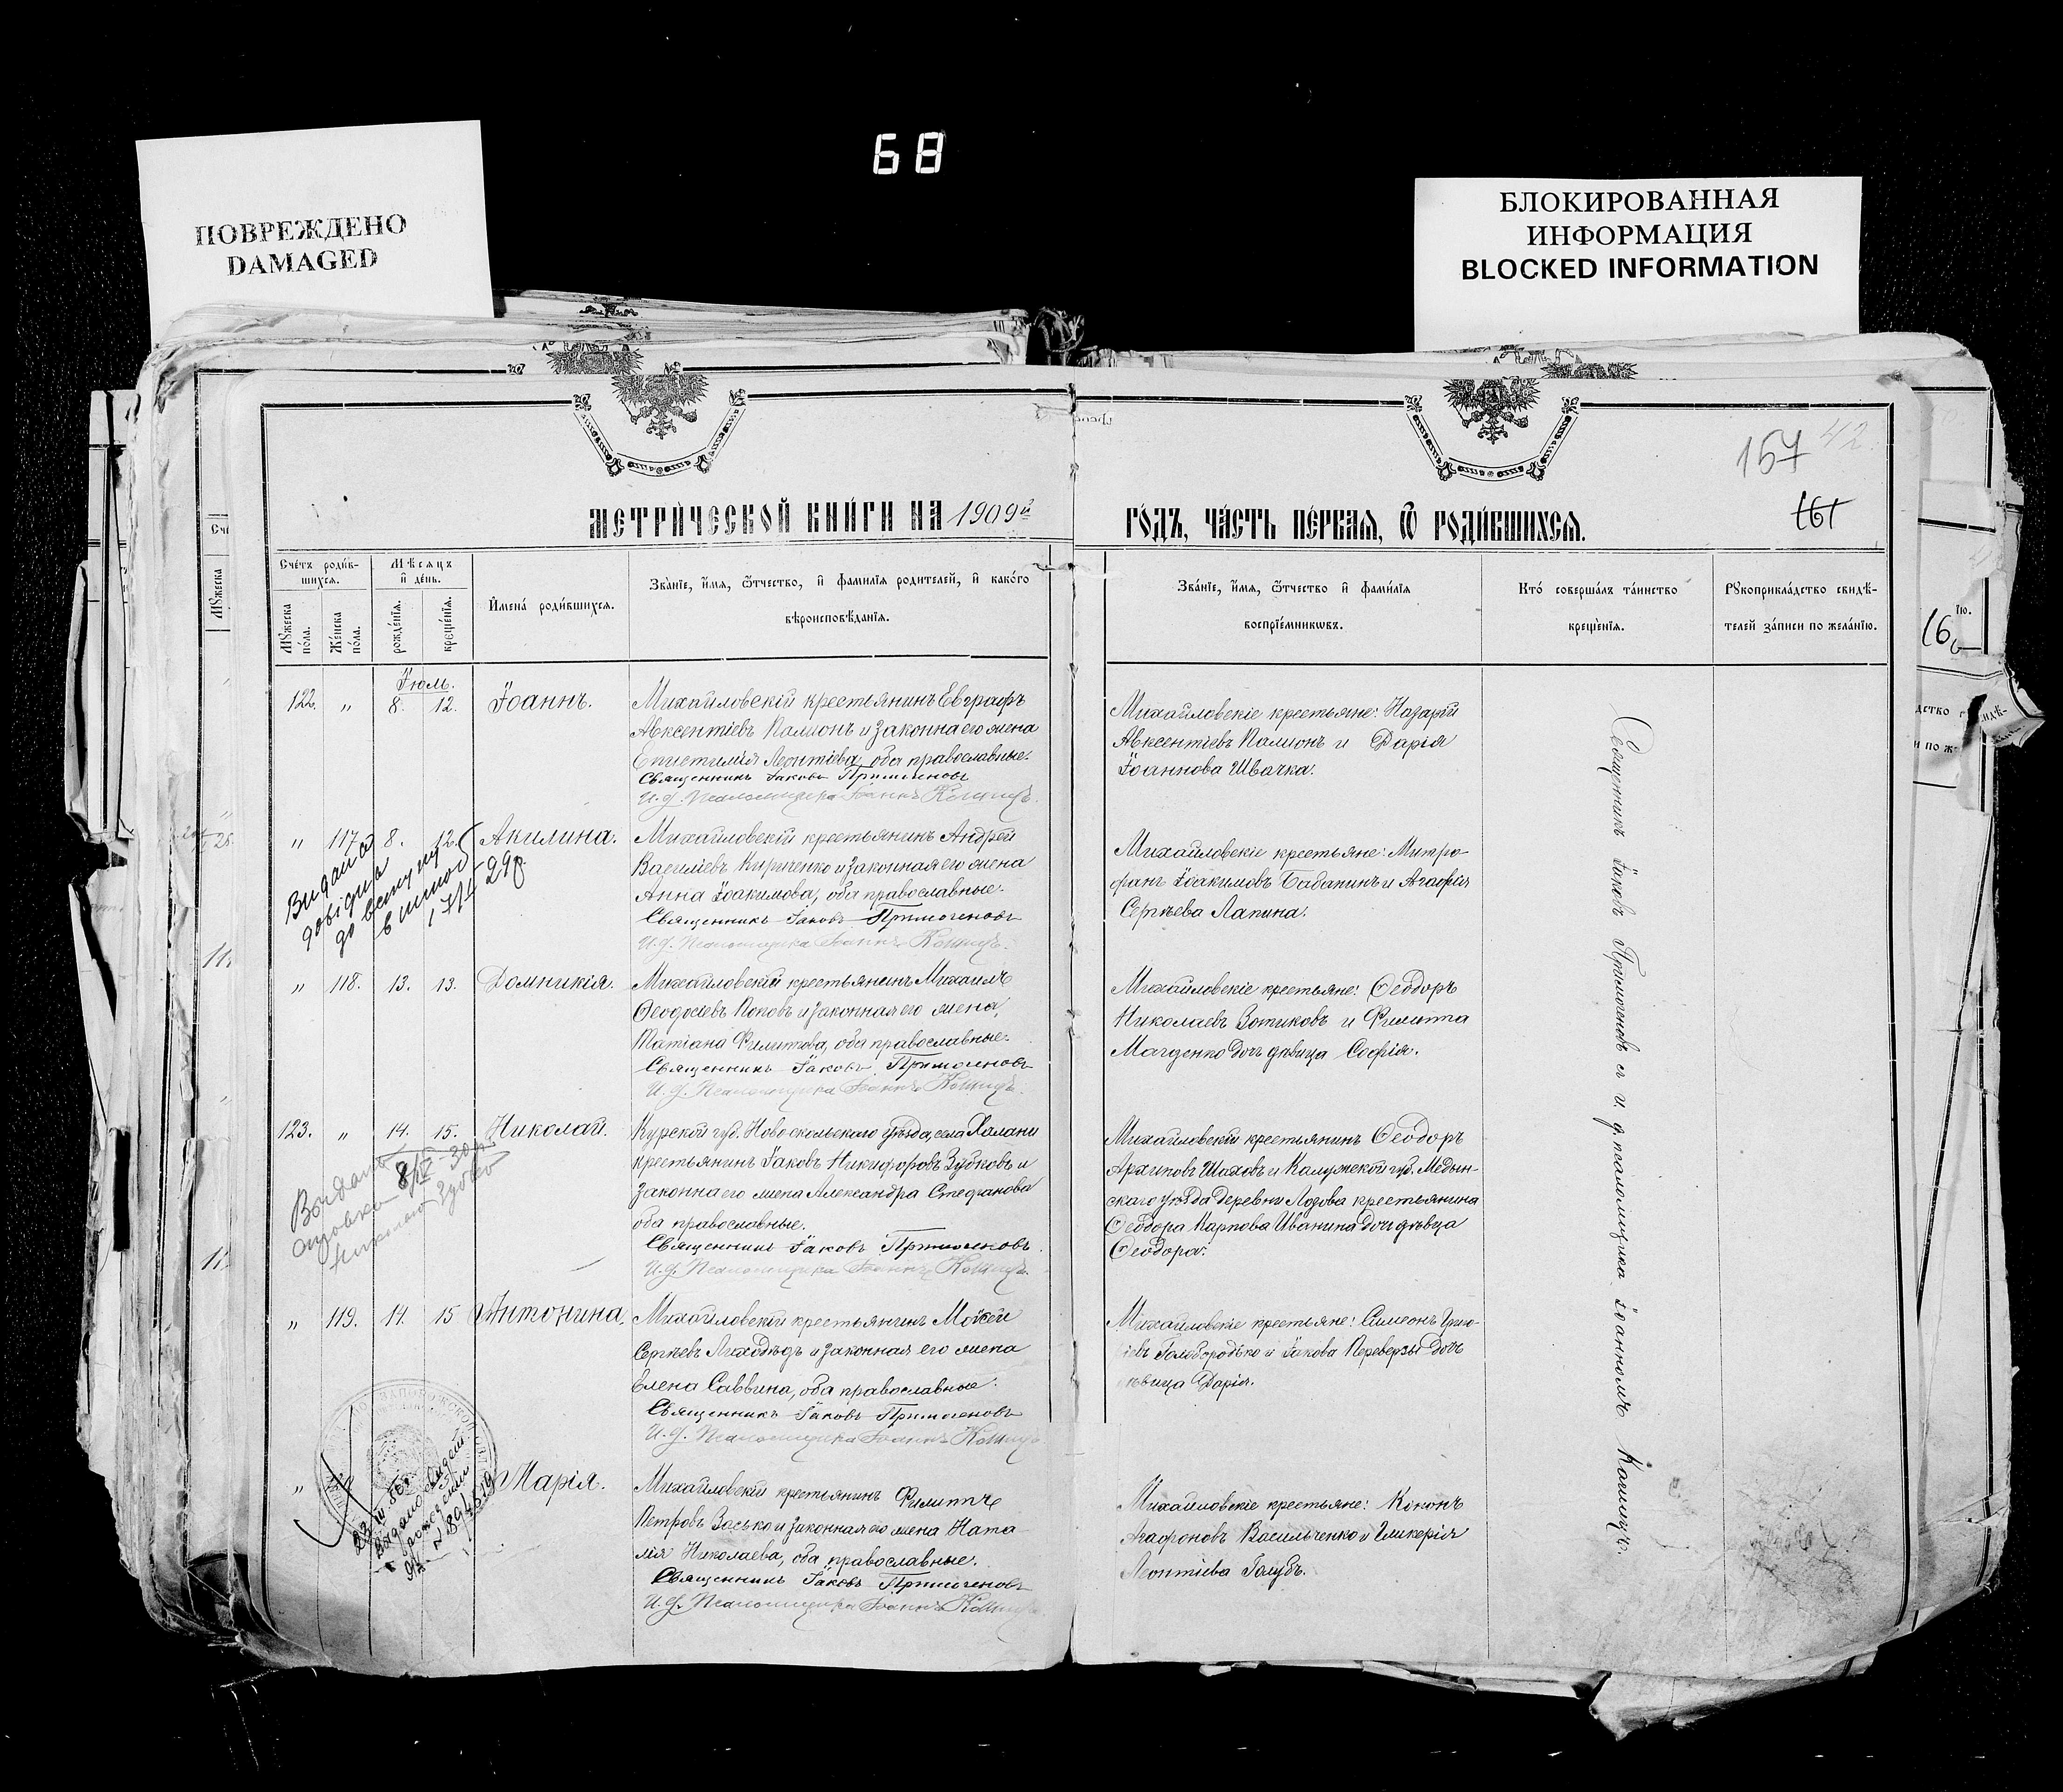 68
ПОВРЕЖДЕНО
DAMAGED
БЛОКИРОВАННАЯ
ИНФОРМАЦИЯ
BLOCKED INFORMATION
157 42
161
МЕТРИ́ЧЕСКОЙ КНИ́ГИ НА 1909й
ГО́ДЪ, ЧА́СТЬ ПЕ́РВАЯ, Ѿ РОДИ́ВШИХСЯ.
Сче́тъ роди́в-
шихся.
Мѣсяцъ
и де́нь.
Мꙋжеска по́ла.
Же́нска по́ла.
рожде́нїя.
креще́нїя.
Имена́ роди́вшихся.
Зва́нїе, и́мя, ѻ́тчество, и фами́лїя родителей, и како́го
вѣроисповѣ́данїя.
Зва́нїе, и́мя, ѻ́тчество и фами́лїя
воспрїе́мникѡвъ.
Кто́ соверша́лъ та́инство
креще́нїя.
Рꙋкоприкла́дство свидѣ́-
телей за́писи по жела́нїю.
Іюль.
122. " 8. 12. Іоаннъ.
Михайловскій крестьянинъ Евграфъ
Авксентіевъ Паліонъ и законна его жена
Епистимія Леонтіева, оба православные.
Священникъ Іаковъ Примогеновъ
И.д. Псаломщика Іоаннъ Кошицъ.
Михайловскіе крестьяне: Назарій
Авксентіевъ Паліонъ и Дарія
Іоаннова Швачка.
" 117 8. 12. Акилина.
Михайловскій крестьянинъ Андрей
Василіевъ Кириченко и законная его жена
Анна Іоакимова, оба православные.
Священникъ Іаковъ Примогеновъ
И.д. Псаломщика Іоаннъ Кошицъ.
Михайловскіе крестьяне: Митро-
фанъ Іоакимовъ Бабанинъ и Агафія
Сергѣева Лапина.
Видана
довідка
до вступу
в шлюб
17/I 29р.
" 118. 13. 13. Домникія.
Михайловскій крестьянинъ Михаилъ
Ѳеодосіевъ Поповъ и законная его жена,
Татіана Филиппова, оба православные.
Священникъ Іаковъ Примогеновъ
И.д. Псаломщика Іоаннъ Кошицъ.
Михайловскіе крестьяне: Ѳеодоръ
Николаевъ Зотиковъ и Филиппа
Магденко дочь дѣвица Софія.
123. " 14. 15. Николай.
Курской губ. Новоскольскаго уѣзда, села Халани
крестьянинъ Іаковъ Никифоровъ Зубковъ и
законна его жена Александра Стефанова
оба православные.
Священникъ Іаковъ Примогеновъ
И.д. Псаломщика Іоаннъ Кошицъ.
Михайловскій крестьянинъ Ѳеодоръ
Архиповъ Шаховъ и Калужской губ. Медын-
скаго уѣзда деревни Лозова крестьянина
Ѳеодора Карпова Иванина дочь дѣвица
Ѳеодора.
" 119. 14. 15 Антонина.
Михайловскій крестьянинъ Моѵсей
Сергѣевъ Лиходѣдъ и законная его жена
Елена Саввина, оба православные.
Священникъ Іаковъ Примогеновъ
И.д. Псаломщика Іоаннъ Кошицъ
Михайловскіе крестьяне: Симеонъ Григо-
іевъ Голобородько и Іакова Переверзы дочь
ѣвица Дарія.
" Марія.
Михайловскій крестьянинъ Филиппъ
Петровъ Засько и законная его жена Ната-
лія Николаева, оба православные.
Священникъ Іаковъ Примогеновъ
И.д. Псаломщика Іоаннъ Кошицъ
Михайловскіе крестьяне: Кононъ
Агафоновъ Васильченко и Гликерія
Леонтіева Голубъ.
Священникъ Іаковъ Примогеновъ съ и.д. псаломщика Іоанномъ Кошицъ.